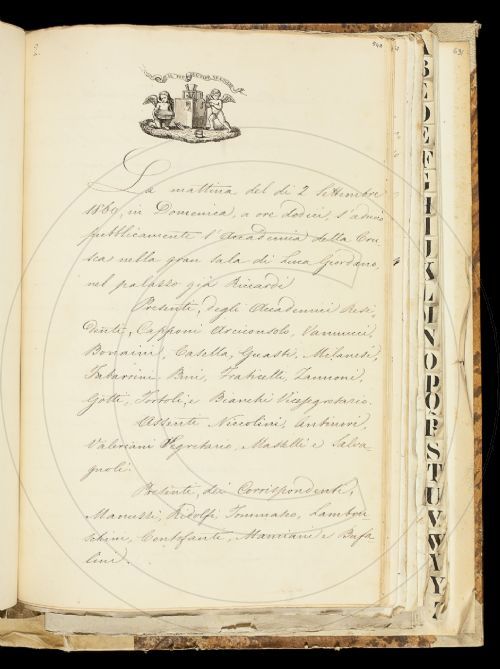 La mattina del dì 2 Settembre
1869, in Domenica, a ore dodici, s'adunò
pubblicamente l'Accademia della Cru
sca nella gran sala di Luca Giordano,
nel palazzo già Riccardi
Presenti, degli Accademici Resi
denti, Capponi Arciconsolo, Vannucci,
Bonaini, Casella, Guasti, Milanesi,
Tabarrini, Bini, Fraticelli, Zannoni,
Gotti, Tortoli, e Bianchi Vicesegretario.
Assenti Niccolini, Antinori,
Valeriani Segretario, Maselli e Salva-
gnoli.
Presenti, dei Corrispondenti,
Manuzzi, Ridolfi, Tommaseo, Lambru
schini, Centofanti, Mamiani e Bufa
lini.
A
B
C
D
E
F
G
H
I
J
K
L
M
N
O
P
Q
R
S
T
U
V
W
X
Y
Z